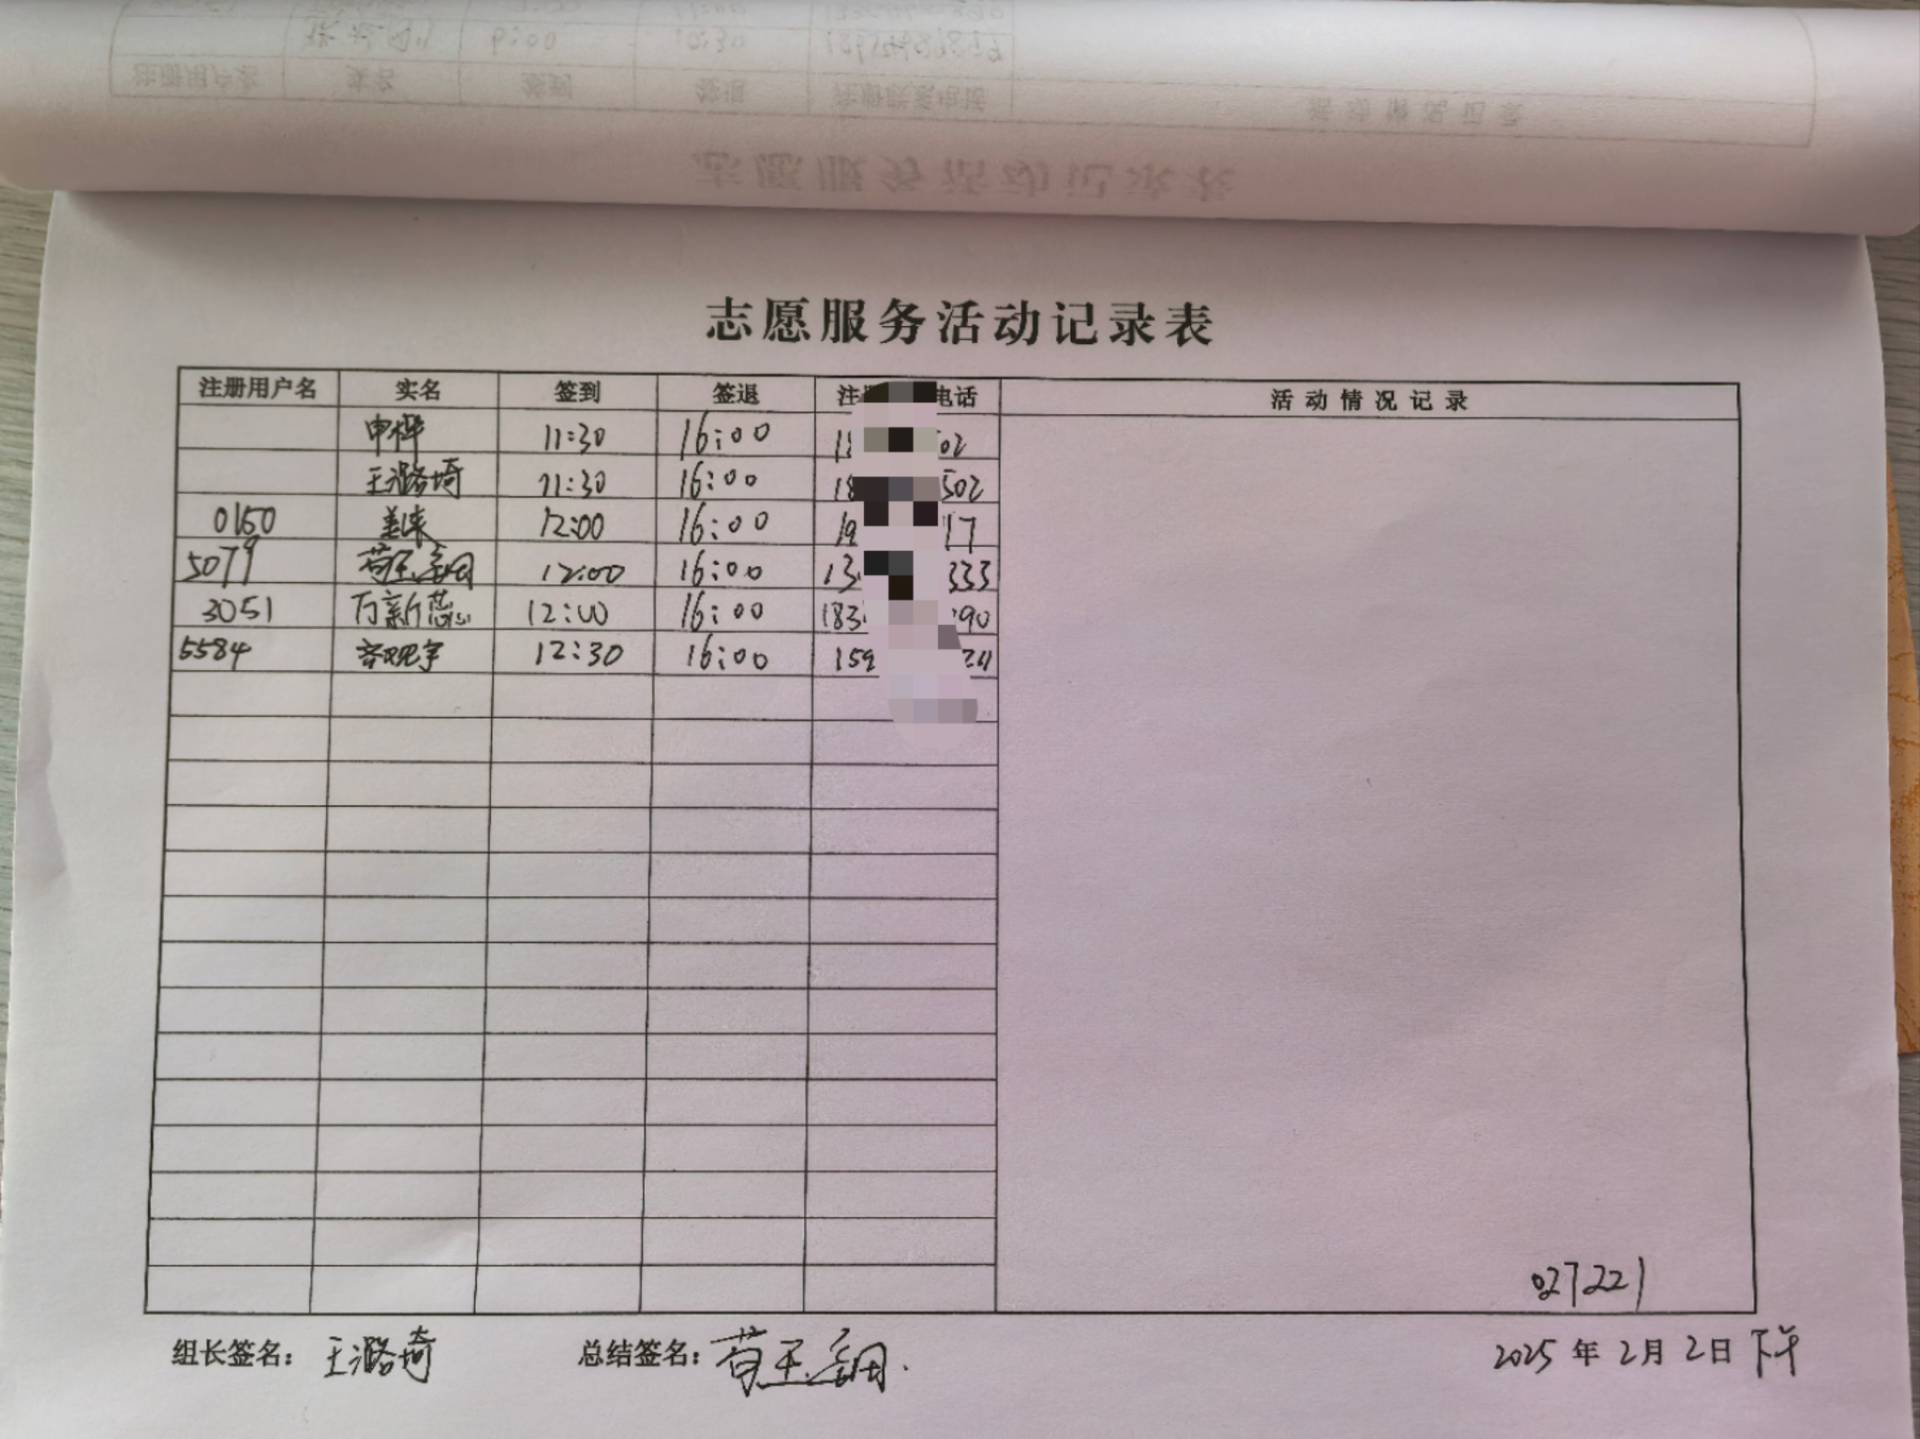 志愿服务活动记录表
注册用户名 实名 签到 签退 注 电话 活动情况记录
申桦 11:30 16:00 11 02
王潞埼 11:30 16:00 18 502
0150 12:00 16:00 19 17
5079 12:00 16:00 13 333
3051 万新蕊 12:00 16:00 183 90
5584 12:30 16:00 159 24
027221
组长签名: 王潞埼 总结签名:
2025年2月2日下午